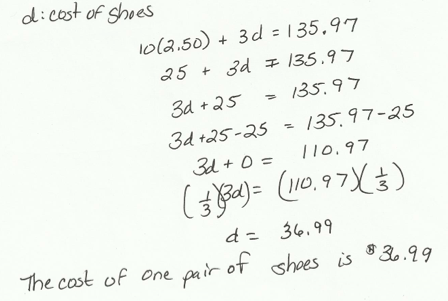 d: cost of shoes
10(2.50) + 3d = 135.97
25 + 3d = 135.97
3d + 25 = 135.97
3d + 25 - 25 = 135.97 - 25
3d + 0 = 110.97
(1/3)(3d) = (110.97)(1/3)
d = 36.99
The cost of one pair of shoes is $36.99